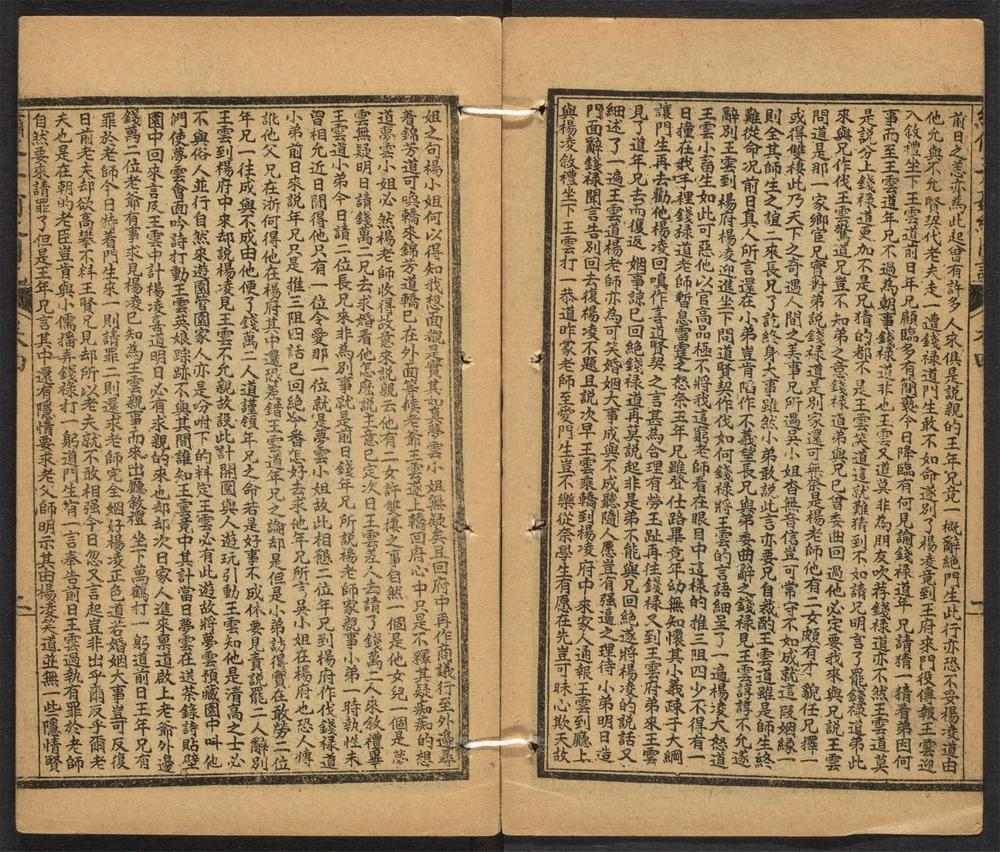 前日之恙亦為此起曾有許多人來俱是説親的王年兄竟一概辭絶門生此行亦恐不妥楊凌道由
他允與不允賢契代老夫走一遭錢祿道門生敢不如命遂別了楊凌竟到王府來門役傳報王雲迎
入敘禮坐下王雲道前日年兄顧臨多有簡褻今日降臨有何見諭錢祿道年兄請猜一猜看弟因何
事而至王雲道年兄不過為朝事錢祿道非也王雲又道莫非為朋友吹荐錢祿道亦不然王雲道莫
是説分上錢祿道更加不是王雲笑道這就難猜到不如請兄明言了罷錢祿道弟此
來與兄作伐王雲驚道兄豈不知弟之意錢祿道弟與兄已曾委曲回過他必定要我來與兄説王雲
問道是那一家鄉宦兄實對弟説錢祿道是別家還可無柰是楊老師他有二女頗有才貌任兄擇一
或得雙棲此乃天下之奇遇人間之美事兄所遇吳小姐杳無音信豈可常守不如成就這段姻緣一
則全其師生之誼二來長兄了終身大事雖然小弟敢説此言亦要兄自裁酌王雲道雖是師生終
難從命况前日真人所言還在小弟豈肯陷作不義望長兄與弟委曲辭之錢祿見王雲諄諄不允遂
辭別王雲到楊府楊凌迎進坐下問道賢契作伐如何錢祿將王雲的言語細呈了一遍楊凌大怒道
王雲小畜生如此可惡他以官高品極不將我這窮老師看在眼目中這樣的推三阻四少不得有一
日撞在我手裡錢祿道老師暫息雷霆之怒柰王年兄雖登仕路畢竟年幼無知懷其小義疎于大綱
讓門生再去勸他楊凌回嗔作喜道賢契之言甚為合理有勞玉趾再往錢祿又到王雲府弟來王雲
見了道年兄去而復返姻事諒已回絶錢祿道再莫説起非是弟不能與兄回絶遂將楊凌的説話又
細述了一遍王雲道楊老師亦為可笑婚姻大事成與不成聽隨人愿豈有强逼之理侍小弟明日造
門面辭錢祿聞言告別回去後楊凌不題且説次早王雲乘轎到楊凌府中來家人通報王雲到廳上
與楊凌敘禮坐下王雲打一恭道昨蒙老師至愛門生豈不樂從柰學生有愿在先豈可昧心欺天故
姐之句楊小姐何以得知我想面貌是實其如真夢雲小姐無疑矣且回府中再作商議行至外邊尋
着錦芳道可喚轎來錦芳道轎已在外面等候老爺王雲遂上轎回府心中只是不釋其疑痴痴的想
道夢雲小姐必然楊老師收得故意來説親云他有二女許雙摟之事自然一個是他女兒一個是夢
雲無疑明日請錢萬二兄去求婚看他怎麼説王意已定次日王雲差人去請了錢萬二人來敘禮畢
王雲道小弟今日請二位長兄來非為別事就是前日錢年兄所説楊老師家親事小弟一時執性未
曾相允近日聞得他只有一位令愛那一位就是夢雲小姐故此相懇二位年兄到楊府作伐錢祿道
小弟前日來説年兄只是推三阻四話已回絶今番怎好去求他年兄所言吳小姐在楊府也恐人傳
訛他父兄在浙何得他在楊府其中還恐差錯王雲道年兄之論却是但是小弟訪得實在敢勞二位
年兄一往成與不成由他便了錢萬二人道謹領年兄之命若是好事不成休要見責説罷二人辭別
王雲到楊府中來却説楊凌見王雲不允親故設此計開園與人遊玩引動王雲知他是清高之士必
不與俗人並行自然來遊園管園家人亦是分咐下的料定王雲必有此遊故將夢雲預藏園中叫他
們使夢雲會面吟詩打動王雲英娘踪跡不與其聞誰知王雲竟中其計當日夢雲在送茶錄詩貼壁
園中回來言及王雲中計楊凌喜道明日必有求親的來也却却次日家人進來禀道啟上老爺外邊
錢萬二位老爺有事求見楊凌已知為王雲親事而來出廳敘禮坐下萬鶴打一躬道前日王年兄有
罪於老師今日特着門生來一則請罪二則還求老師完全姻好楊凌正色道若婚姻大事豈可反復
日前老夫却欲高攀不料王賢兄見却所以老夫就不敢相强今日忽又言起豈非出乎爾反乎爾老
夫也是在朝的老臣豈肯與小儒播弄錢祿打一躬道門生有一言奉告前日王雲過執有罪於老師
自然要來請罪了但是王年兄言其中還有隱情要求老父師明示其由楊凌笑道並無一些隱情賢